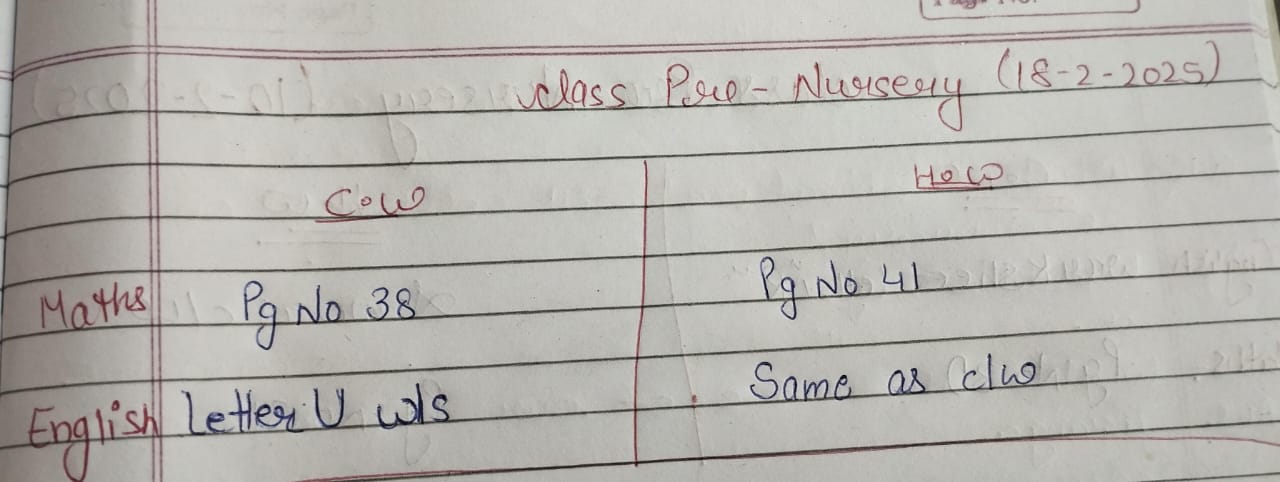 class Pre-Nursery (18-2-2025)
C.W H.W
Maths Pg No 38 Pg No 41
English Letter U w/s Same as c/w